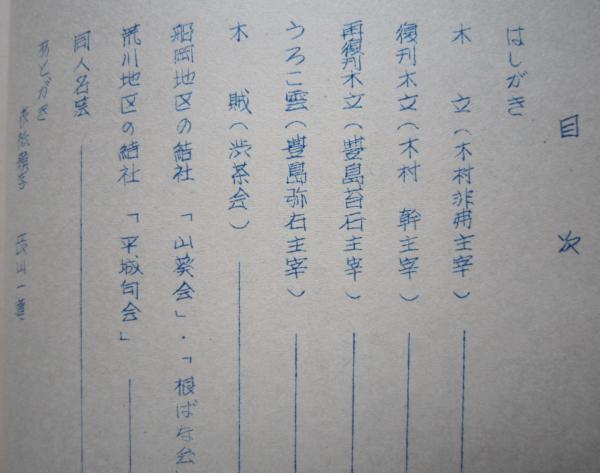 目次
はしがき
木立(木村非甫主宰)
復刊木立(木村幹主宰)
再復刊木立(豊島苔石主宰)
うろこ雲(豊島弥石主宰)
木賊(渋茶会)
船岡地区の結社「山葵会」・「根ばな会
荒川地区の結社「平城句会」
同人名簿
あとがき